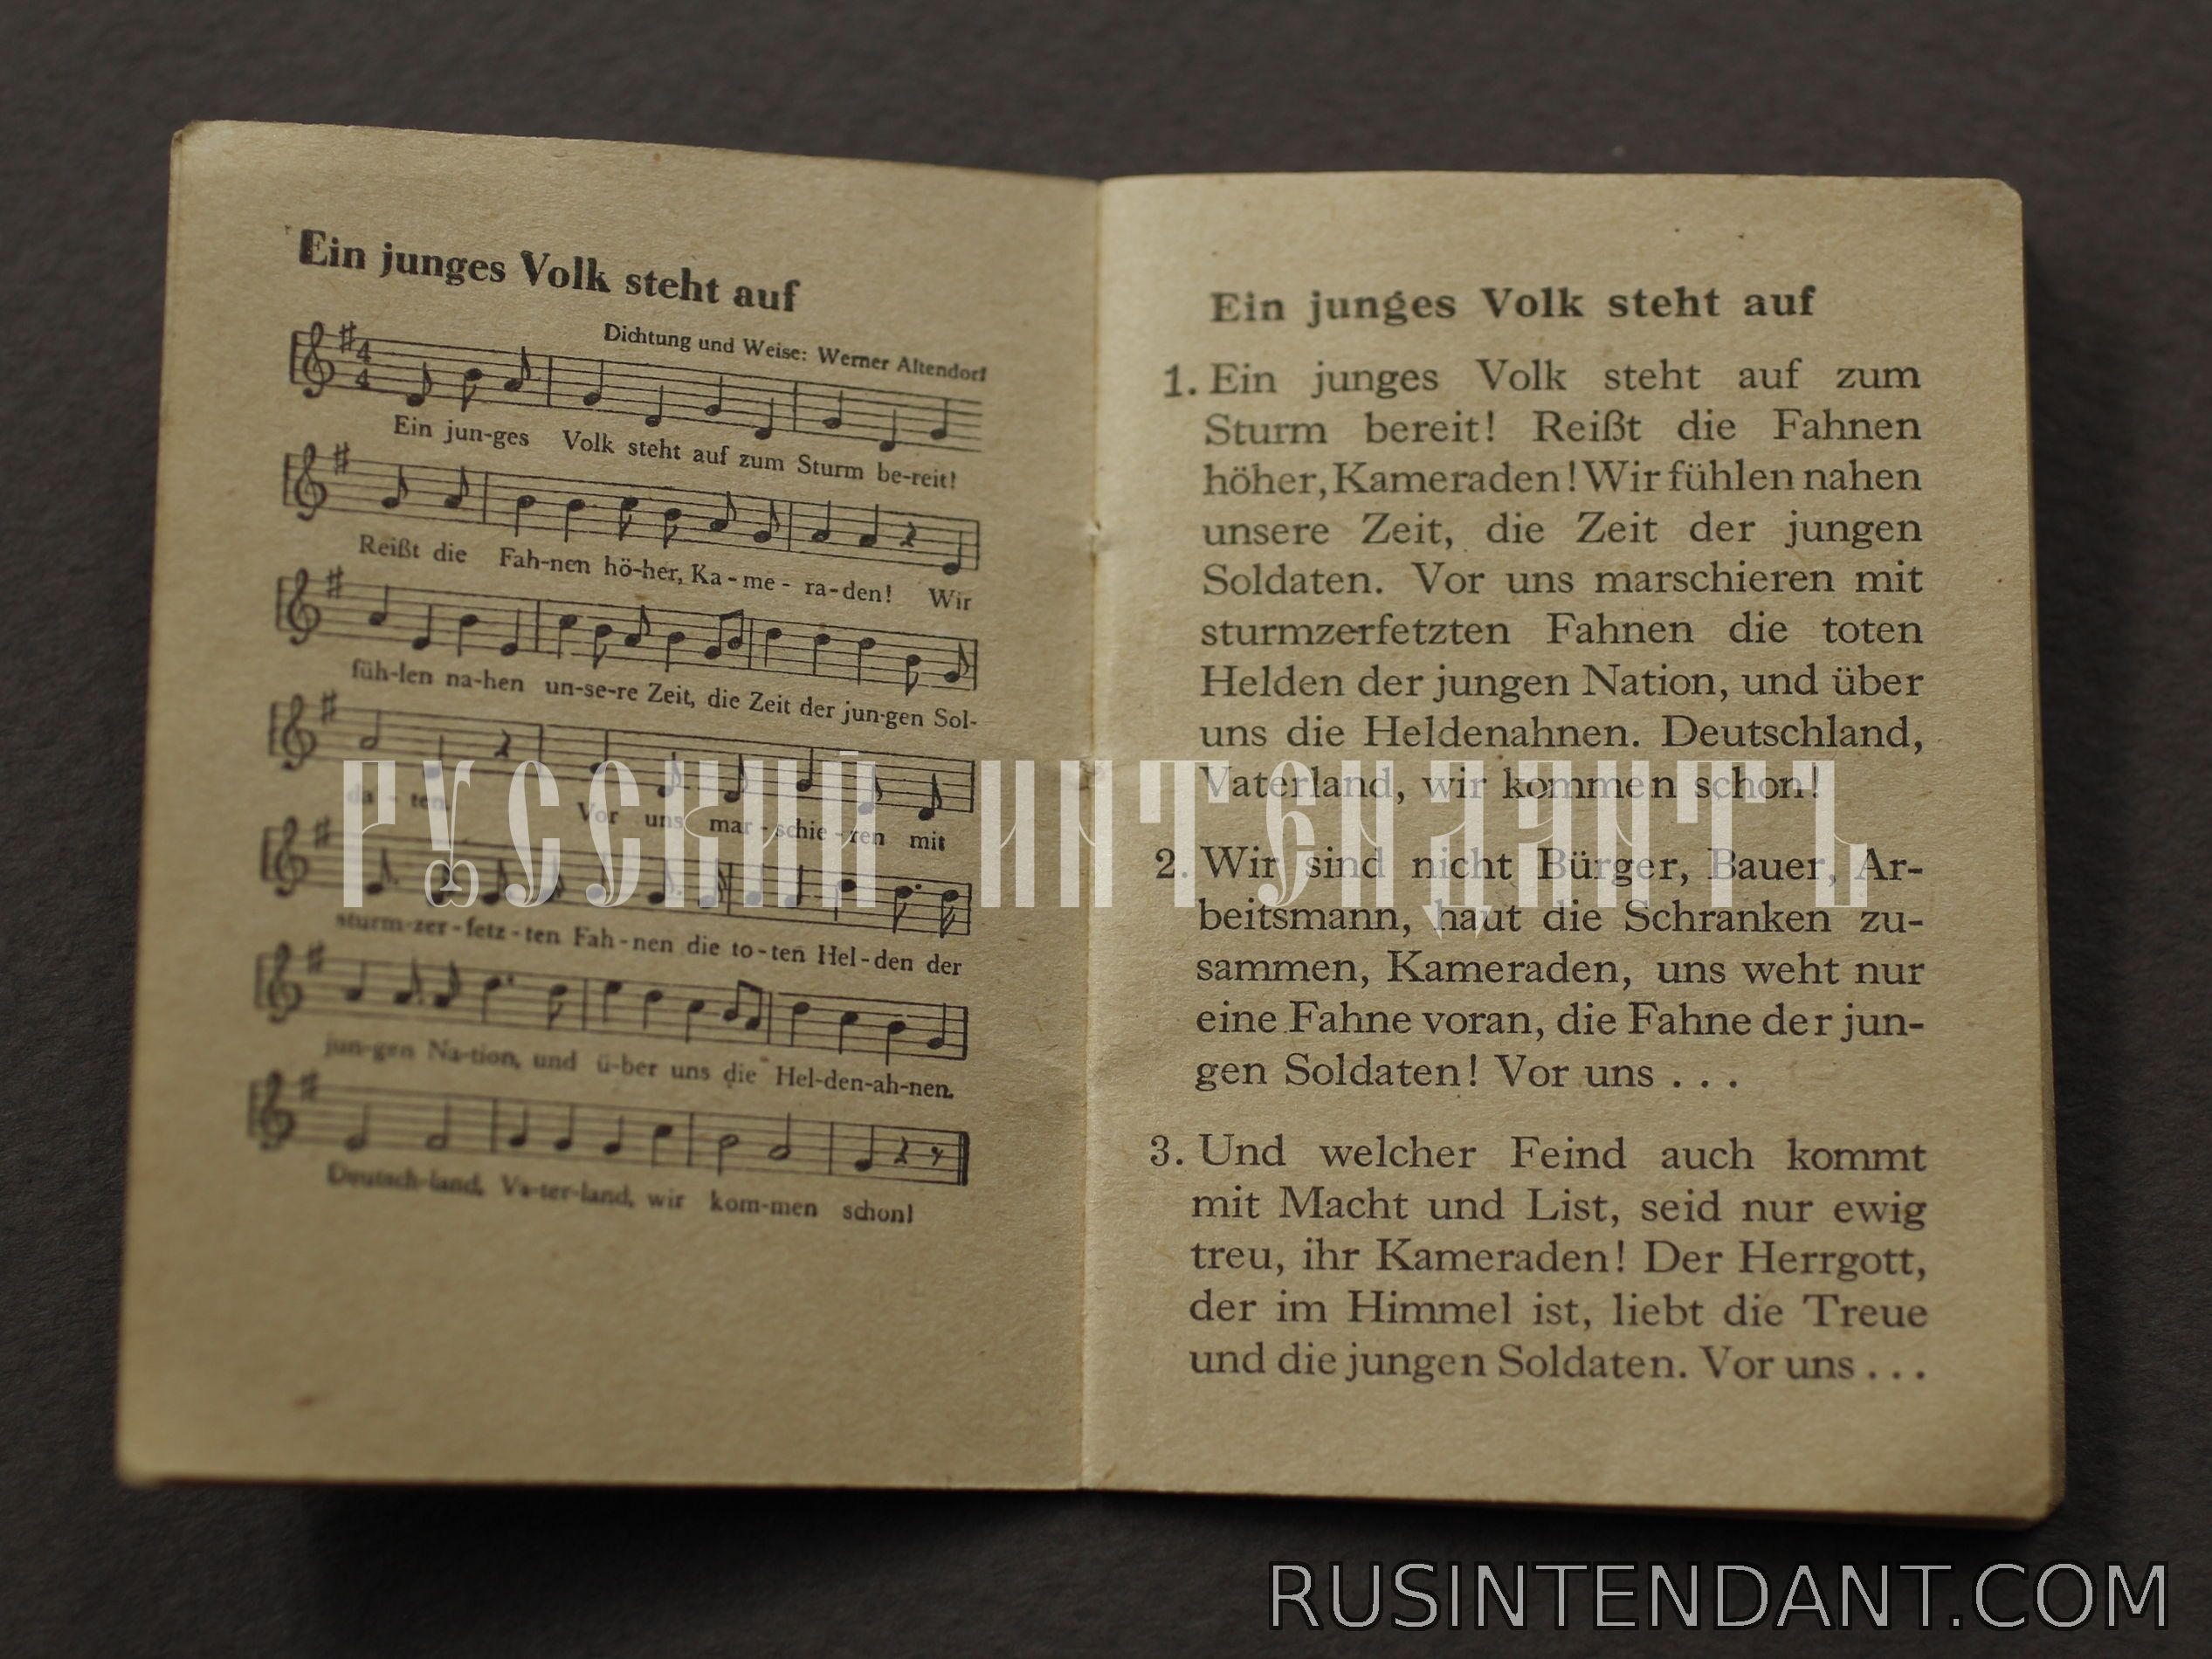 Ein junges Volk steht auf
Dichtung und Weise: Werner Altendorf
4
4
Ein jun-ges Volk steht auf zum Sturm be-reit!
Reißt die Fah-nen hö-her, Ka - me - ra-den! Wir
füh-len na-hen un-se-re Zeit, die Zeit der jun-gen Sol-
da - ten. Vor uns mar - schie - ren mit
sturm-zer-fetz-ten Fah-nen die to-ten Hel-den der
jun-gen Na-tion, und ü-ber uns die Hel-den-ah-nen.
Deutsch-land, Va-ter-land, wir kom-men schon!
Ein junges Volk steht auf
1. Ein junges Volk steht auf zum
Sturm bereit! Reißt die Fahnen
höher, Kameraden! Wir fühlen nahen
unsere Zeit, die Zeit der jungen
Soldaten. Vor uns marschieren mit
sturmzerfetzten Fahnen die toten
Helden der jungen Nation, und über
uns die Heldenahnen. Deutschland,
Vaterland, wir kommen schon!
2. Wir sind nicht Bürger, Bauer, Ar-
beitsmann, haut die Schranken zu-
sammen, Kameraden, uns weht nur
eine Fahne voran, die Fahne der jun-
gen Soldaten! Vor uns . . .
3. Und welcher Feind auch kommt
mit Macht und List, seid nur ewig
treu, ihr Kameraden! Der Herrgott,
der im Himmel ist, liebt die Treue
und die jungen Soldaten. Vor uns . . .
РУССКИЙ ИНТЕНДАНТЪ
RUSINTENDANT.COM